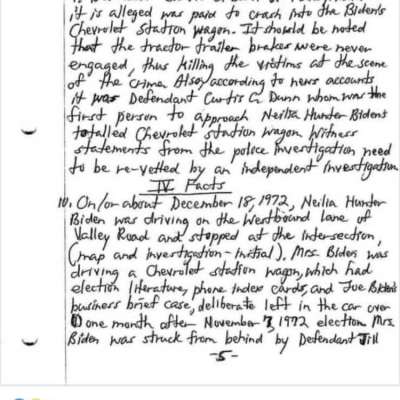 it is alleged was paid to crash into the Biden's
Chevrolet station wagon. It should be noted
that the tractor trailer brakes were never
engaged, thus killing the victims at the scene
of the crime. Also, according to news accounts
it was Defendant Curtis C. Dunn whom was the
first person to approach Neilia Hunter Biden's
totalled Chevrolet station wagon. Witness
statements from the police investigation need
to be re-vetted by an independent investigation.
IV. Facts
10. On/or about December 18, 1972, Neilia Hunter
Biden was driving on the Westbound lane of
Valley Road and stopped at the intersection,
(map and investigation - initial). Mrs. Biden was
driving a Chevrolet station wagon, which had
election literature, phone index cards, and Joe Biden's
business brief case, deliberate left in the car over
(1) one month after November 7, 1972 election. Mrs.
Biden was struck from behind by Defendant Jill
-5-